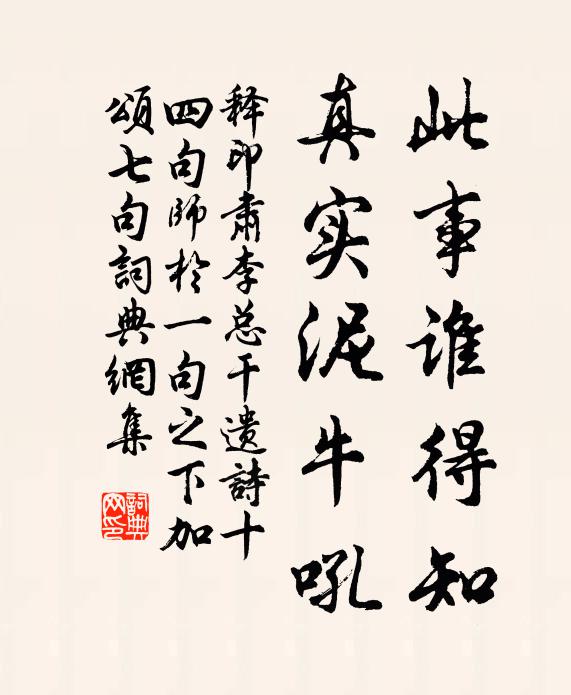 此事谁得知
真实泥牛吼
释印肃李总干遗詩十
四句師於一句之下加
頌七句詞典網集
詞典网印